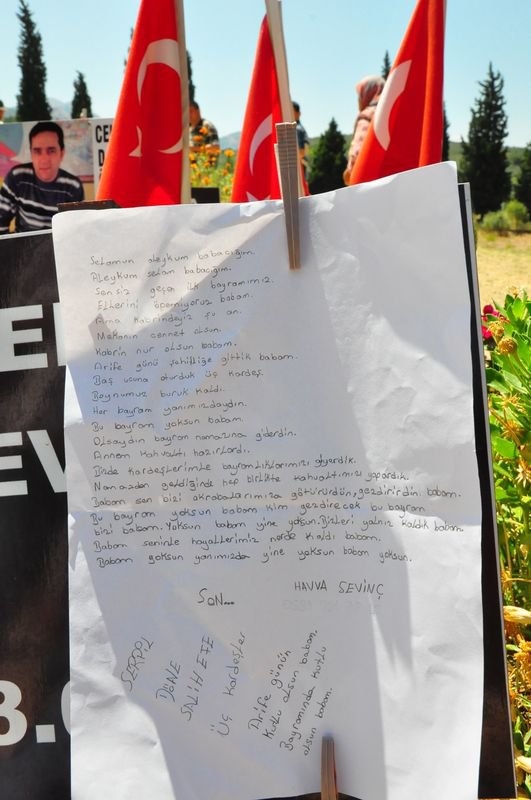 Selamun aleykum babacığım.
Aleykum selam babacığım.
Sensiz geçen ilk bayramımız.
Ellerini öpemiyoruz babam.
Ama kabrindeyiz şu an.
Mekanın cennet olsun.
Kabrin nur olsun babam.
Arife günü şehitliğe gittik babam.
Baş ucuna oturduk üç kardeş.
Boynumuz buruk kaldı.
Her bayram yanımızdaydın.
Bu bayram yoksun babam.
Olsaydın bayram namazına giderdin.
Annem kahvaltı hazırlardı.
Bizde kardeşlerimle bayramlıklarımızı giyerdik.
Namazdan geldiğinde hep birlikte kahvaltımızı yapardık.
Babam sen bizi akrabalarımıza götürürdün, gezdirirdin babam.
Bu bayram yoksun babam kim gezdirecek bu bayram
bizi babam. Yoksun babam yine yoksun. Bizleri yalnız kaldık babam.
Babam seninle hayallerimiz nerde kaldı babam.
Babam yoksun yanımızda yine yoksun babam yoksun.
HAVVA SEVİNÇ
SON...
SERPİL
DÖNE
SALİH EFE
Üç Kardeşler
Arife günün
Kutlu olsun babam.
Bayramında kutlu
olsun babam.
CE
D
E
EV
8.0